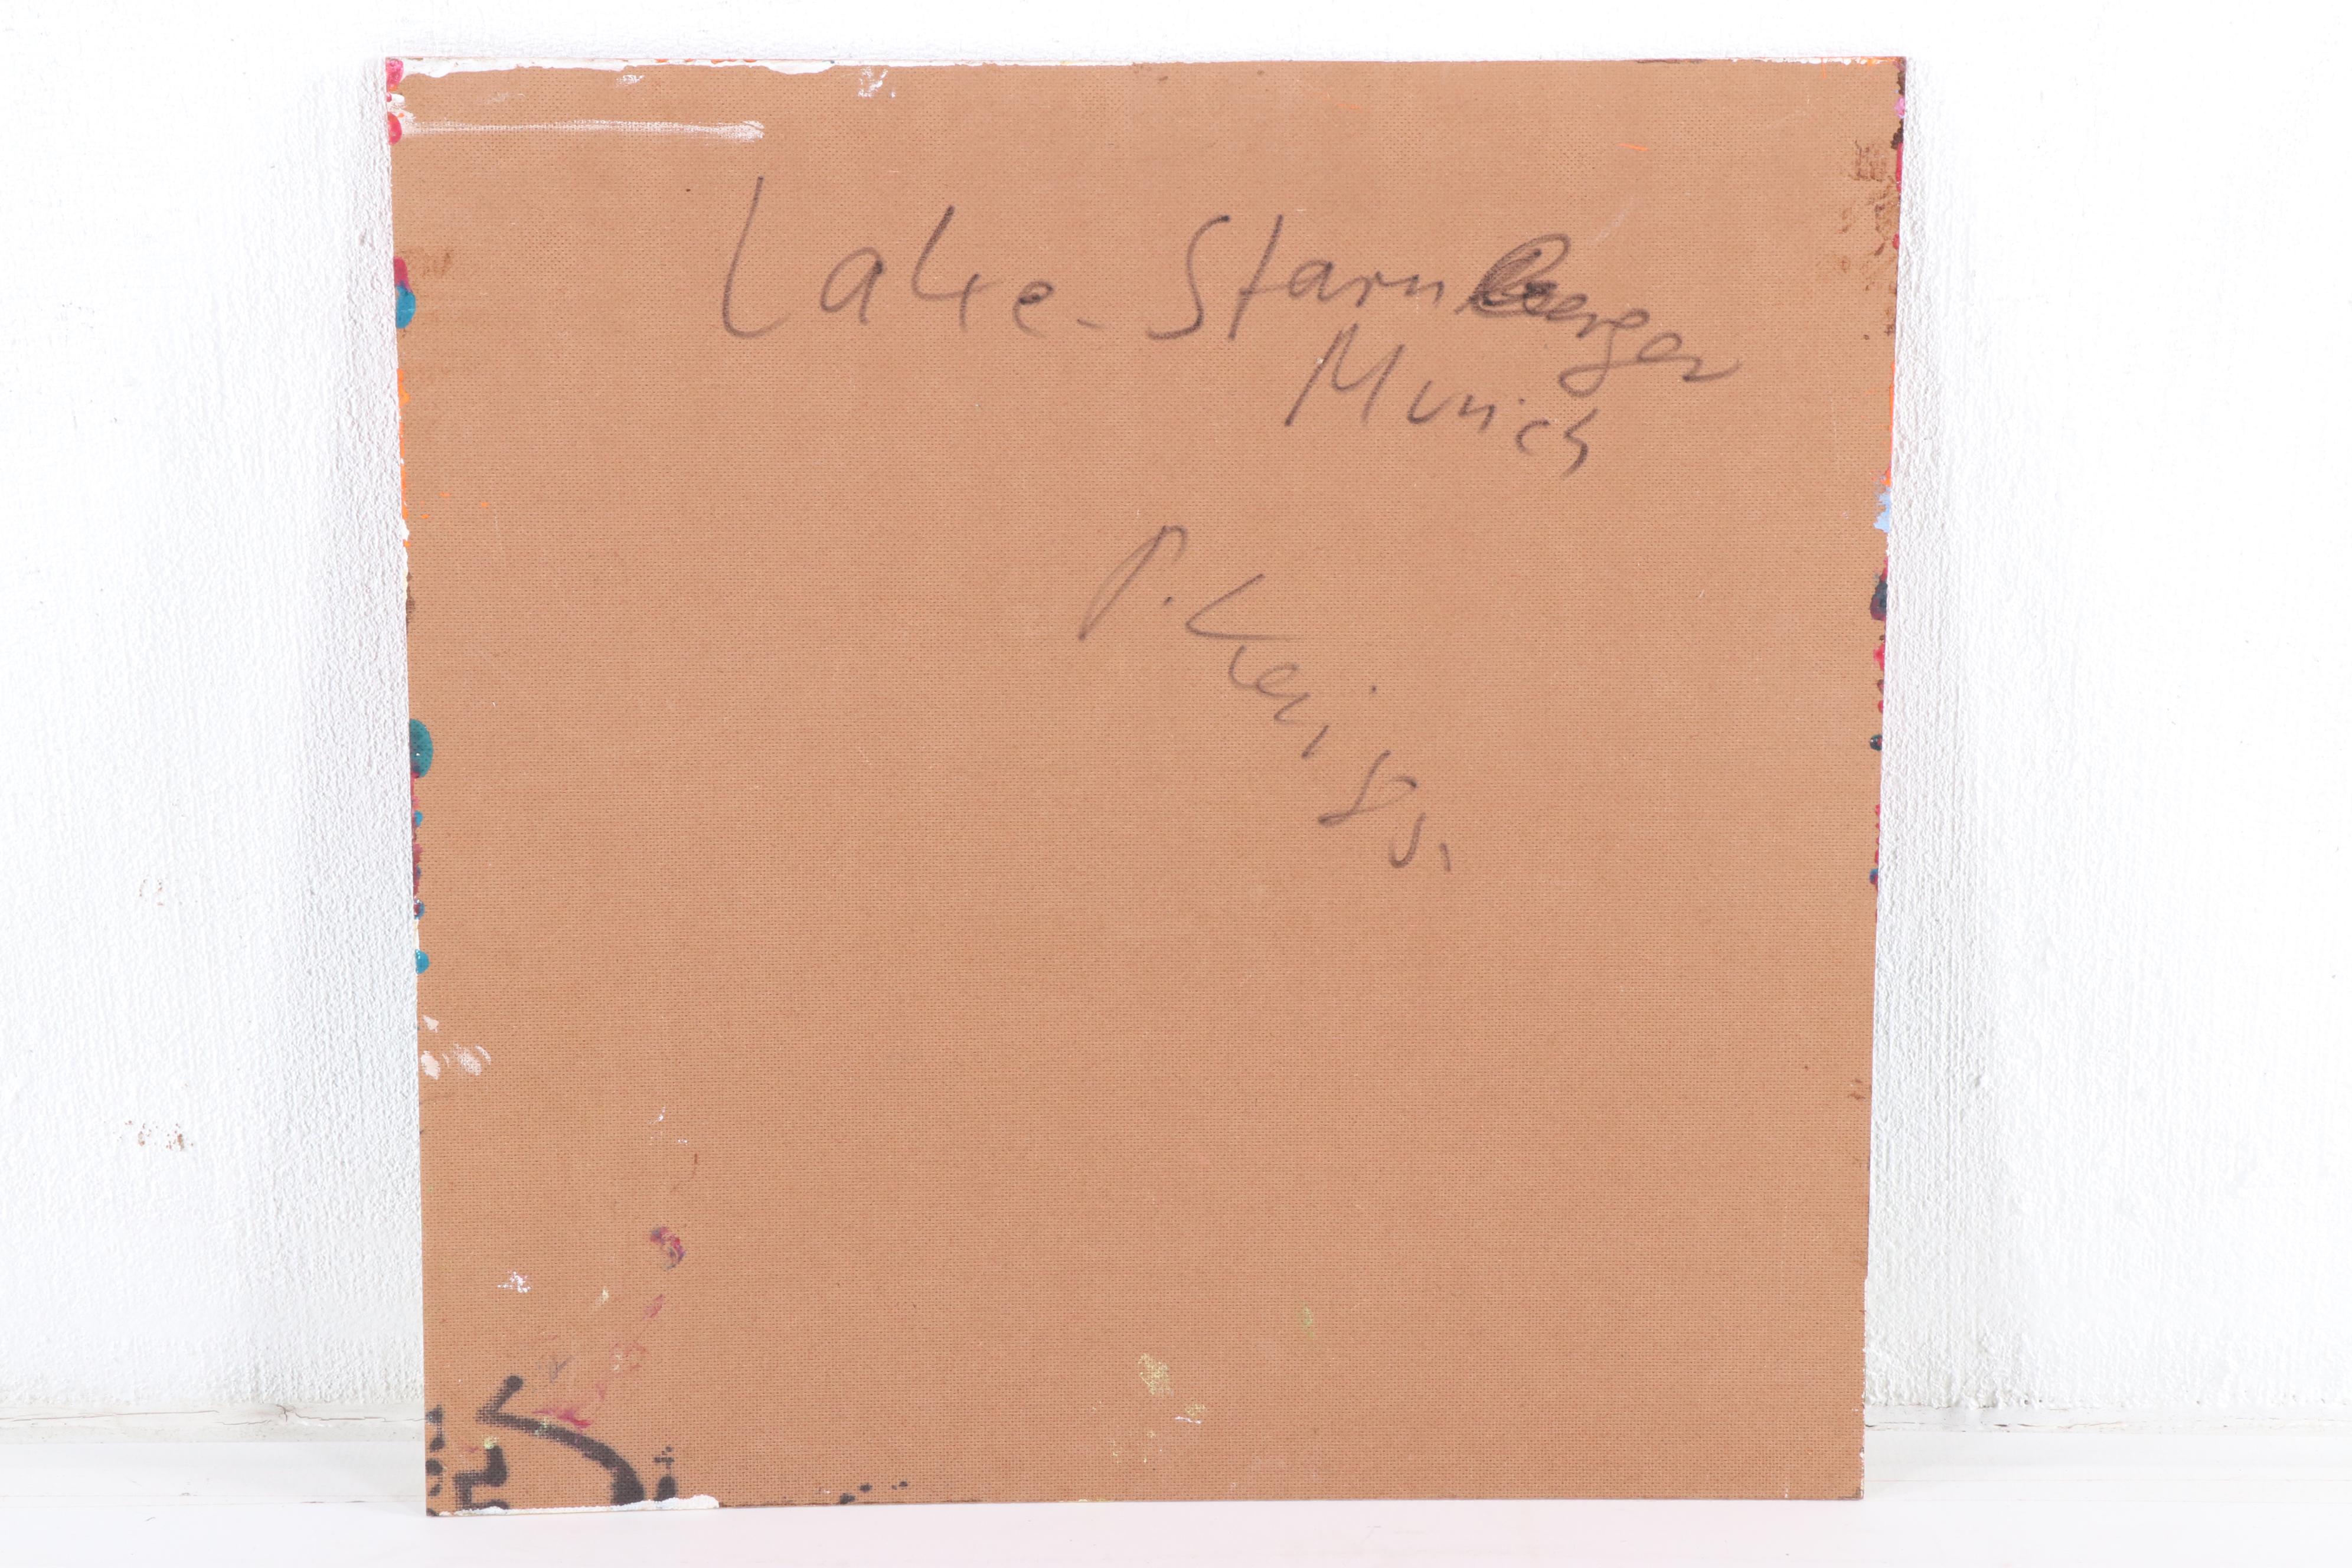 Lake-Starnberger
Munich
P.